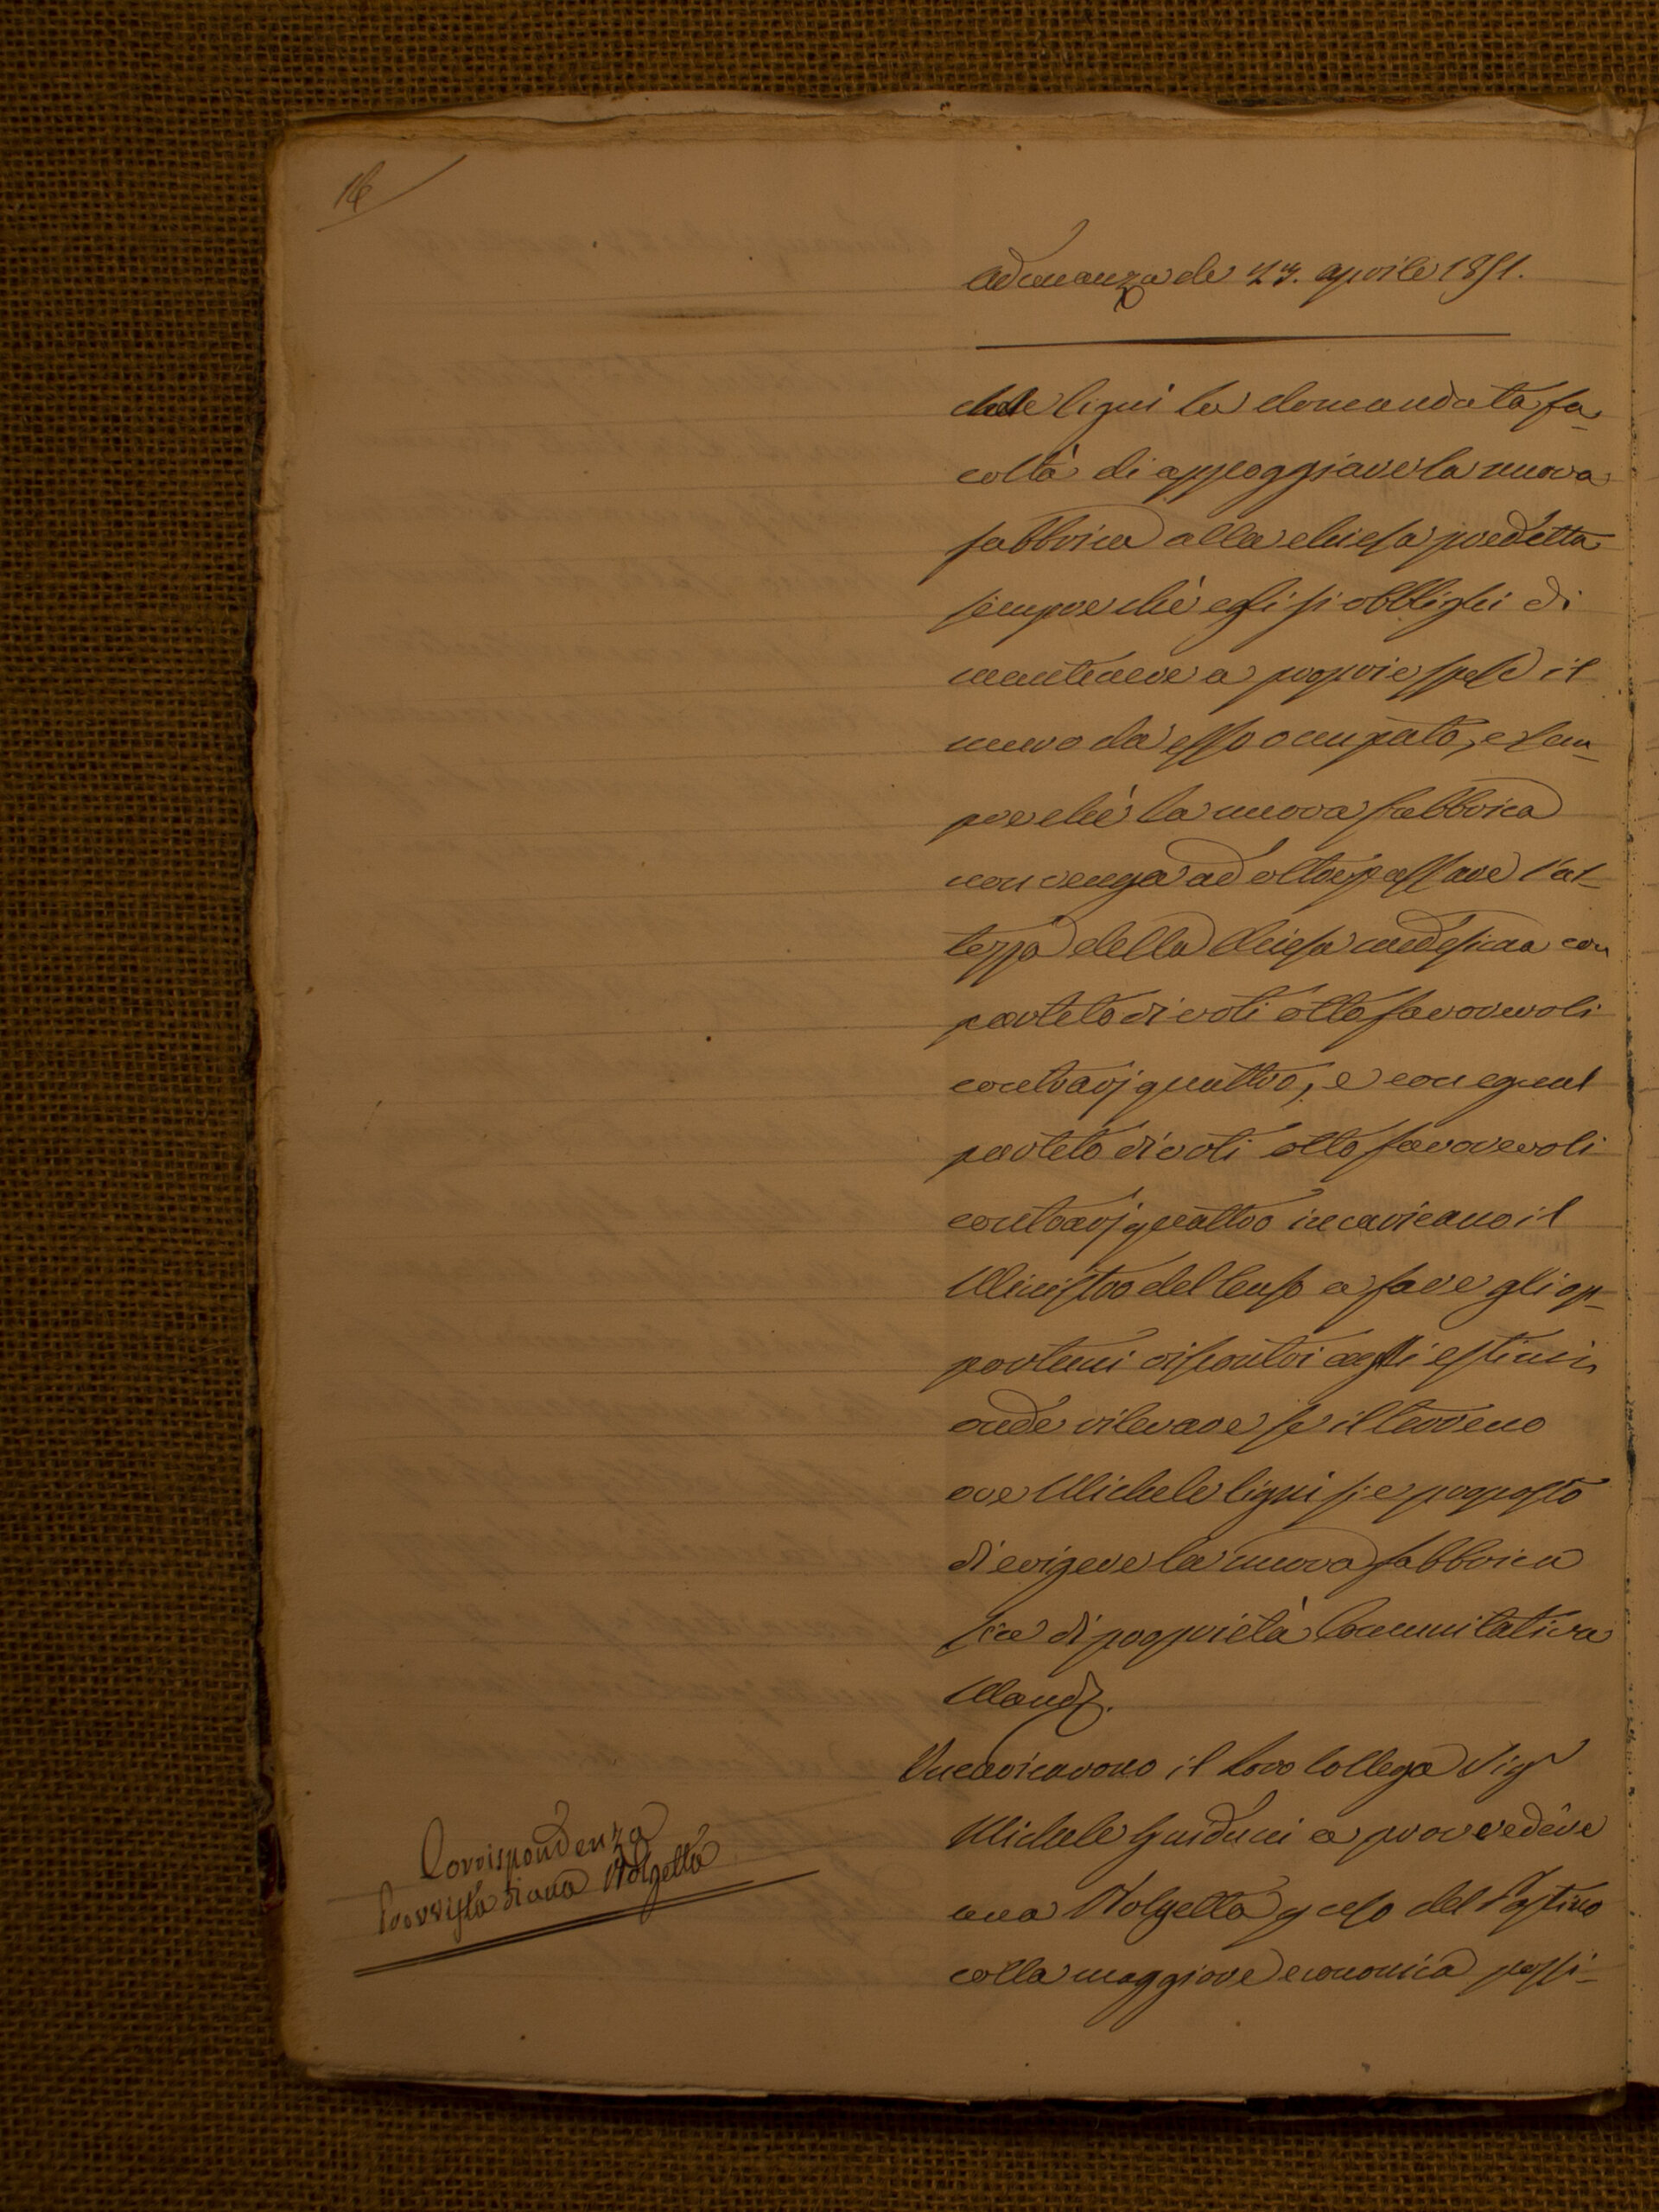 16
Adunanza de 23. aprile 1851.
chele Ligui la domandata fa-
coltà di appoggiare la nuova
fabbrica alla chiesa predetta
sempre chè egli si obblighi di
mantenere a proprie spese il
muro da esso occupato, e sem-
pre chè la nuova fabbrica
non venga ad oltrepassare l'al-
tezza della Chiesa medesima con
partito di voti otto favorevoli
contrarj quattro, e con egual
partito di voti otto favorevoli
contrarj quattro incaricano il
Ministro del Censo a fare gli op-
portuni riscontri agli estimi
onde rilevare se il terreno
ove Michele Ligui si è proposto
di erigere la nuova fabbrica
sia di proprietà Comunitativa
Mand.
Incaricarono il Loro Collega Sigr
Michele Guiducci a provvedere
una Bolgetta p uso del Postino
colla maggiore economia possi-
Corrispondenza
Provvista di una Bolgetta